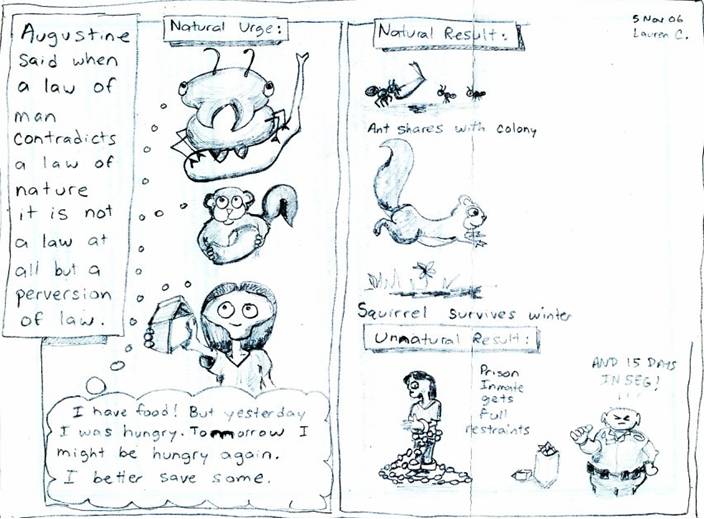 Augustine
said when
a law of
man
contradicts
a law of
nature
it is not
a law at
all but a
perversion
of law.
Natural Urge:
I have food! But yesterday
I was hungry. Tommorrow I
might be hungry again.
I better save some.
5 Nov 06
Lauren C.
Natural Result:
Ant shares with colony
Squirrel survives winter
Unnatural Result:
Prison
Inmate
gets
Full
restraints
AND 15 DAYS
IN SEG!